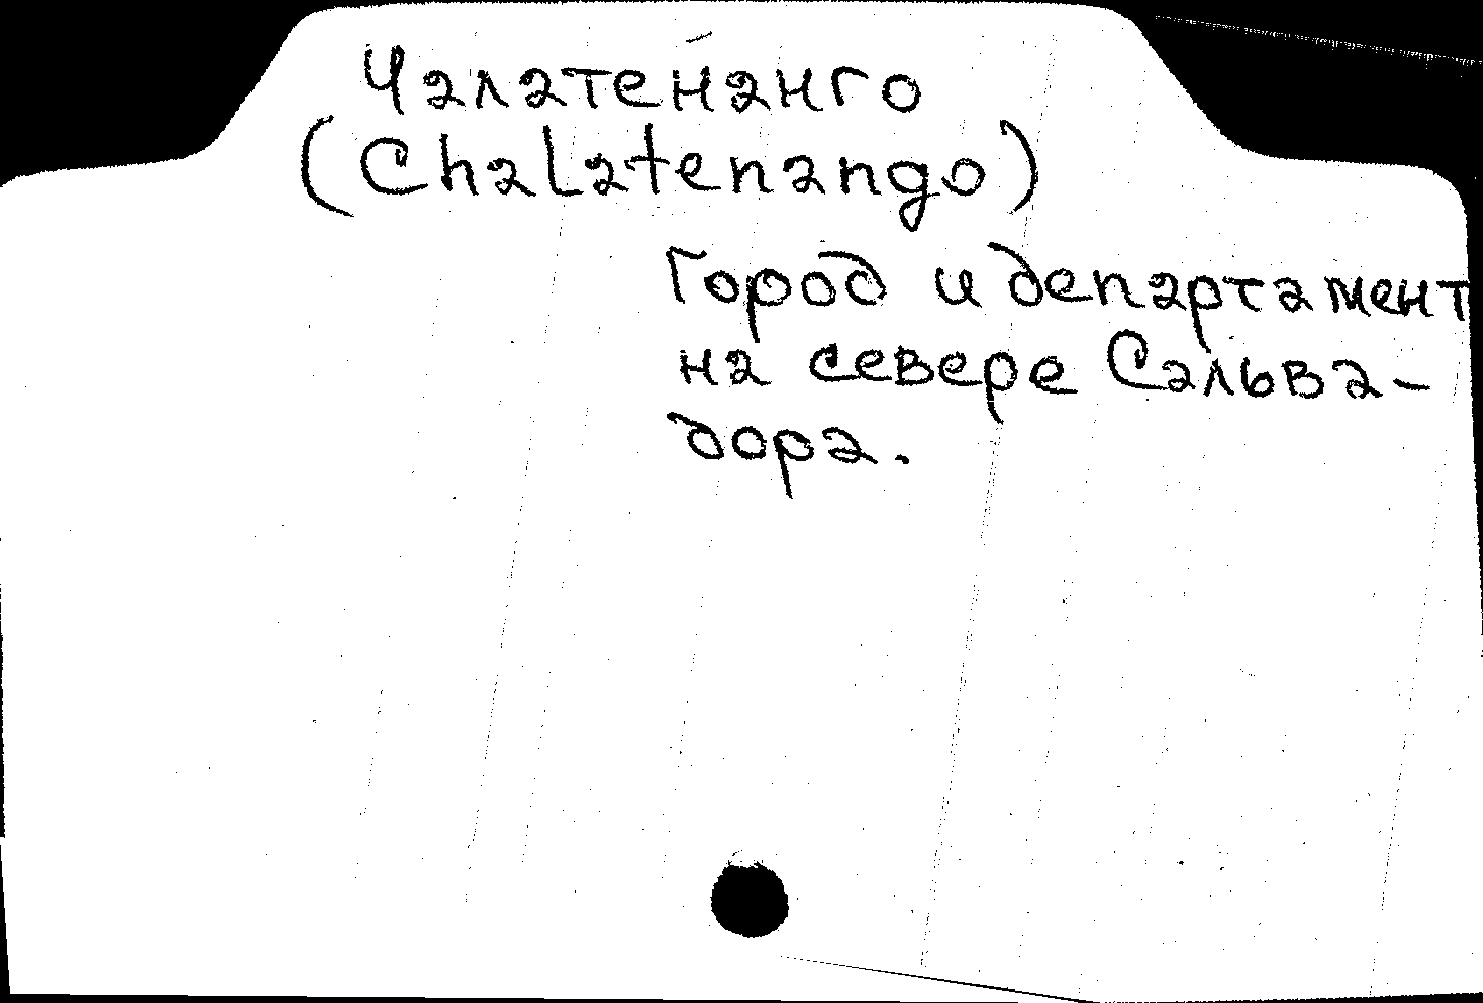 Чалатена́нго
(Chalatenango)
Город и департамент
на севере Сальва-
дора.